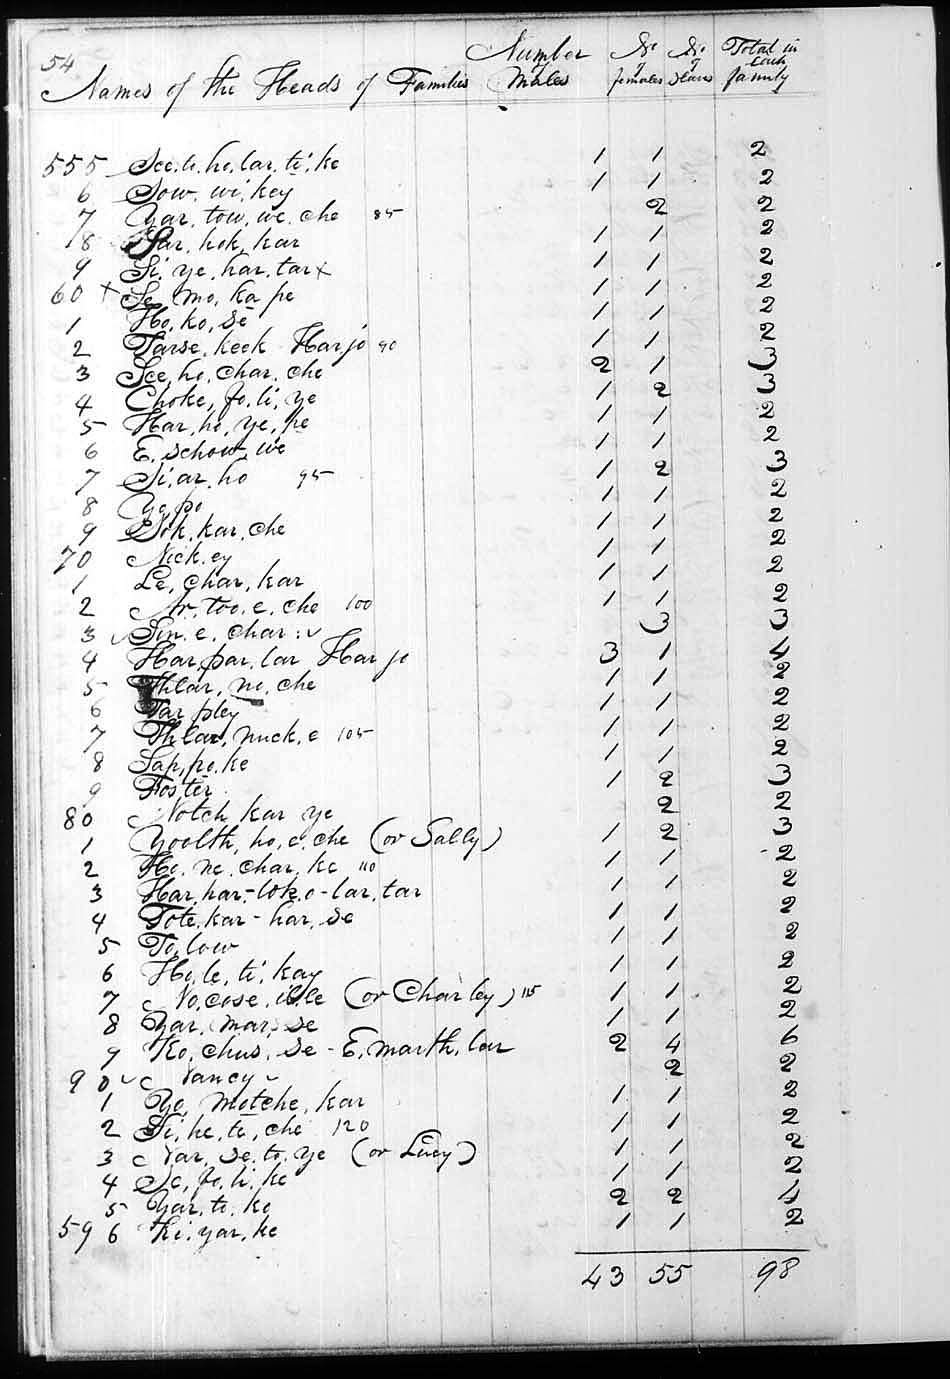 54
Names of the Heads of Families Number of Males No of females No. of Slaves Total in each family
555 See. te. ho. lar. te. ke 1 1 2
6 Sow. wi. key 1 1 2
7 Yar. tow. we. che 85 2 2
8 Sar. hok. kar 1 1 2
9 Si. ye. har. tar x 1 1 2
60 x Se. mo. ka pe 1 1 2
1 Ho. ko. se 1 1 2
2 Tarse. keek Harjo 90 1 1 2
3 See. ho. char. che 2 1 3
4 Choke. fo. li. ye 1 2 3
5 Har. ho. ye. pe 1 1 2
6 E. schout. we 1 1 2
7 Si. ar. ho 95 1 2 3
8 Yo. po 1 1 2
9 Sok. kar. che 1 1 2
70 Nick. ey 1 1 2
1 Le. char. kar 1 1 2
2 Ar. too. e. che 100 1 1 2
3 Sin. e. char 3 3
4 Har. par. lar Harjo 3 1 4
5 Thlar. no. che 1 1 2
6 Tar pley 1 1 2
7 Thlar. nuck. e 105 1 1 2
8 Sap. po. ke 1 1 2
9 Foster 1 2 3
80 Notch kar ye 2 2
1 Yoolth. ho. e. che (or Sally) 1 2 3
2 Ho. ne. char. ke 110 1 1 2
3 Har. har-lok. o-lar. tar 1 1 2
4 Tote. kar-har. se 1 1 2
5 To. low 1 1 2
6 Ho. le. ti. kay 1 1 2
7 No. cose. il. le (or Charley) 115 1 1 2
8 Yar. mar. se 1 1 2
9 Ko. chus. se-E. marth. lar 2 4 6
90 Nancy 2 2
1 Yo. motche. kar 1 1 2
2 Si. he. te. che 120 1 1 2
3 Nar. se. to. ye (or Lucy) 1 1 2
4 Se. fo. li. ke 1 1 2
5 Yar. te. ko 2 2 4
596 Ki. yar. ke 1 1 2
43 55 98